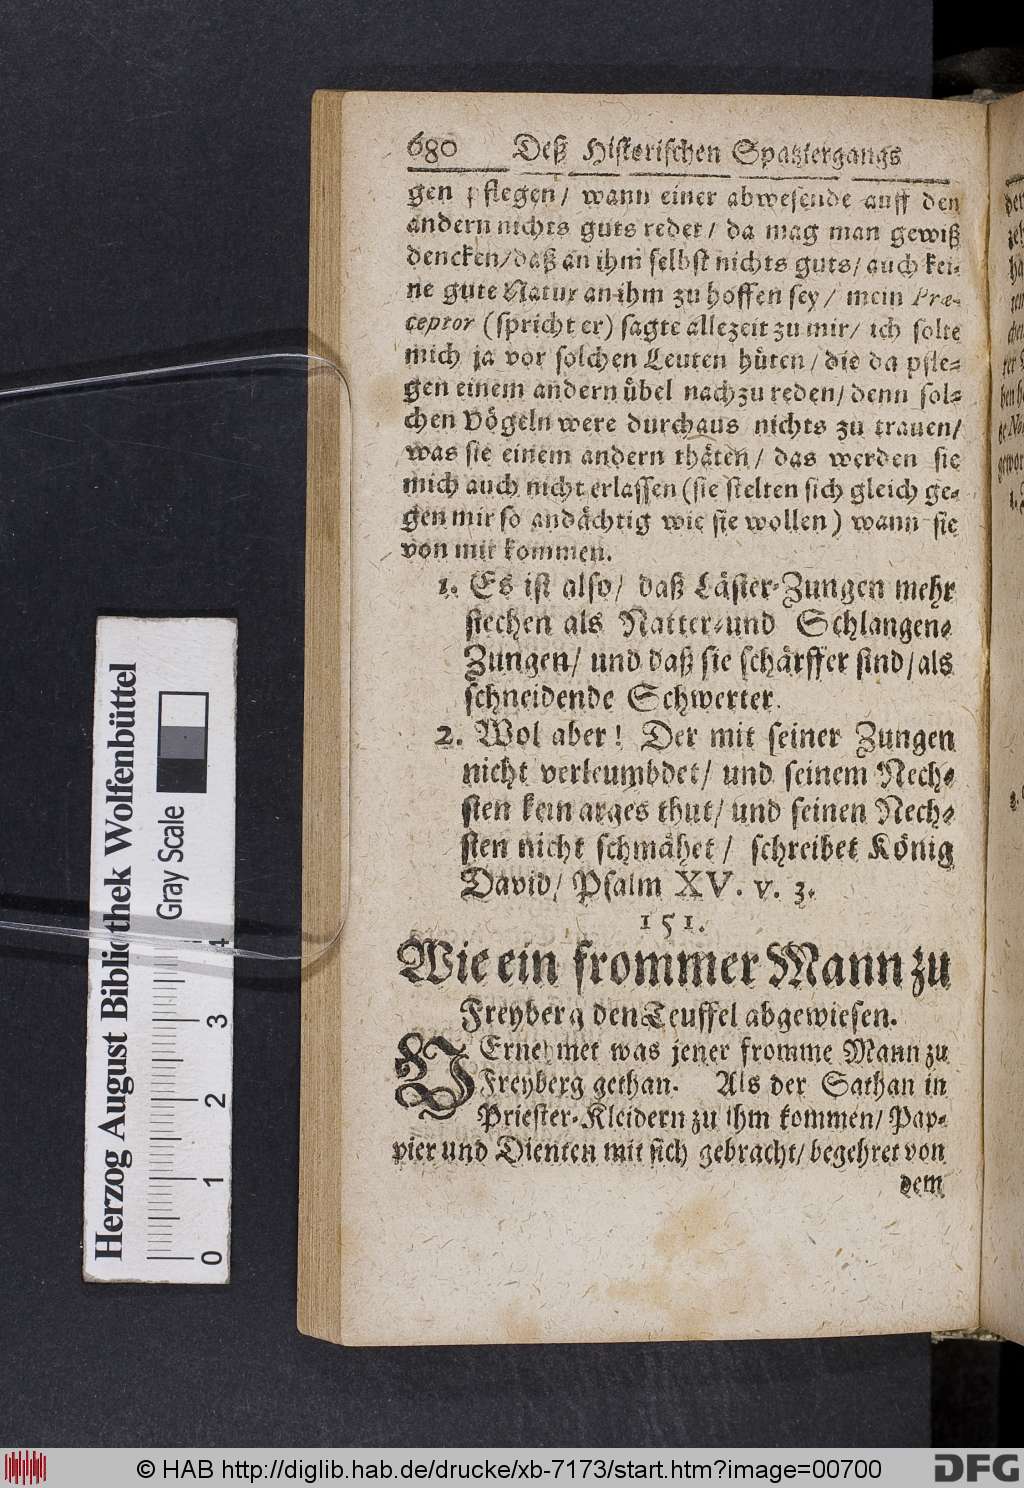 680 Deß Historischen Spatziergangs
gen pflegen / wann einer abwesende auff den
andern nichts guts redet / da mag man gewiß
dencken / daß an ihm selbst nichts guts / auch kei-
ne gute Natur an ihm zu hoffen sey / mein Præ-
ceptor (spricht er) sagte allezeit zu mir / ich solte
mich ja vor solchen Leuten hüten / die da pfle-
gen einem andern übel nachzureden / denn sol-
chen Vögeln were durchaus nichts zu trauen /
was sie einem andern thäten / das werden sie
mich auch nicht erlassen (sie stelten sich gleich ge-
gen mir so andächtig wie sie wollen) wann sie
von mir kommen.
1. Es ist also / daß Läster-Zungen mehr
stechen als Natter- und Schlangen-
Zungen / und daß sie schärffer sind / als
schneidende Schwerter.
2. Wol aber! Der mit seiner Zungen
nicht verleumbdet / und seinem Nech-
sten kein arges thut / und seinen Nech-
sten nicht schmähet / schreibet König
David / Psalm XV. v. 3.
151.
Wie ein frommer Mann zu
Freyberg den Teuffel abgewiesen.
VErnehmet was jener fromme Mann zu
Freyberg gethan. Als der Sathan in
Priester-Kleidern zu ihm kommen / Pap-
pier und Dienten mit sich gebracht / begehret von
dem
Herzog August Bibliothek Wolfenbüttel
Gray Scale
0 1 2 3 4
© HAB http://diglib.hab.de/drucke/xb-7173/start.htm?image=00700
DFG